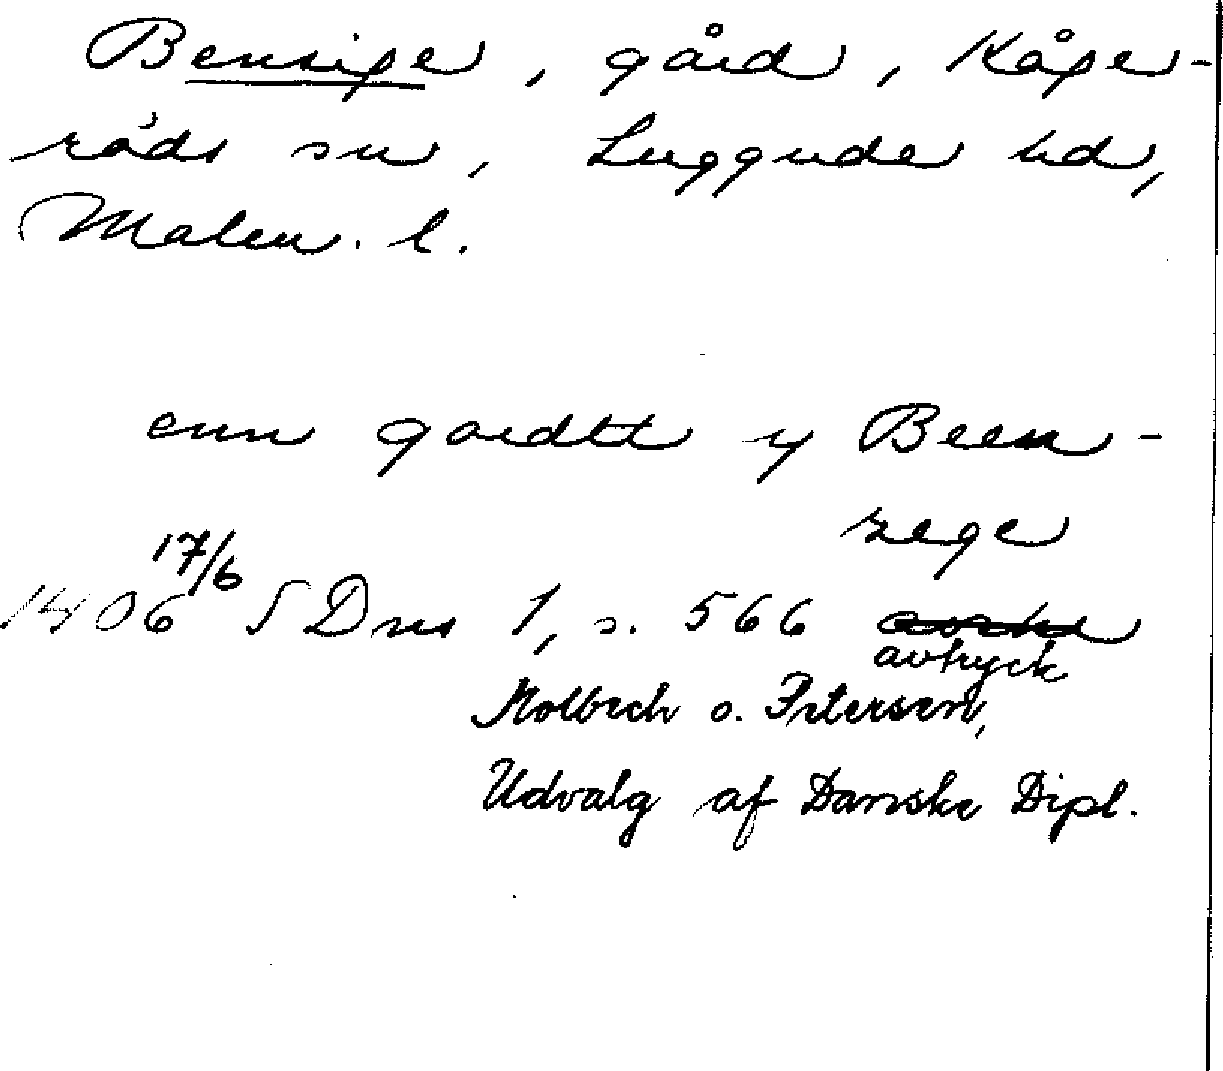 Bensige, gård, Kåge-
röds sn, Luggude hd,
Malm. l.
enn gardtt y Been-
zege
1406 17/6 SDns 1, s. 566
avtryck
Molbech o. Petersen,
Udvalg af Danske Dipl.